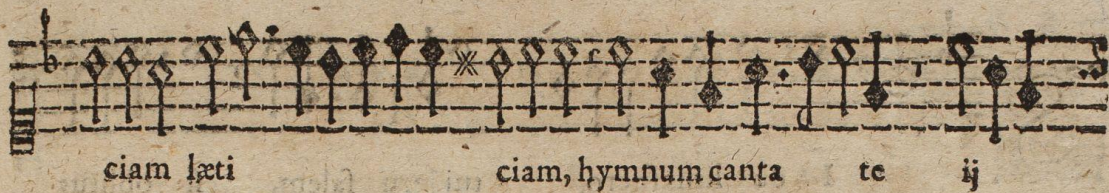 ciam læti ciam, hymnum canta te ij